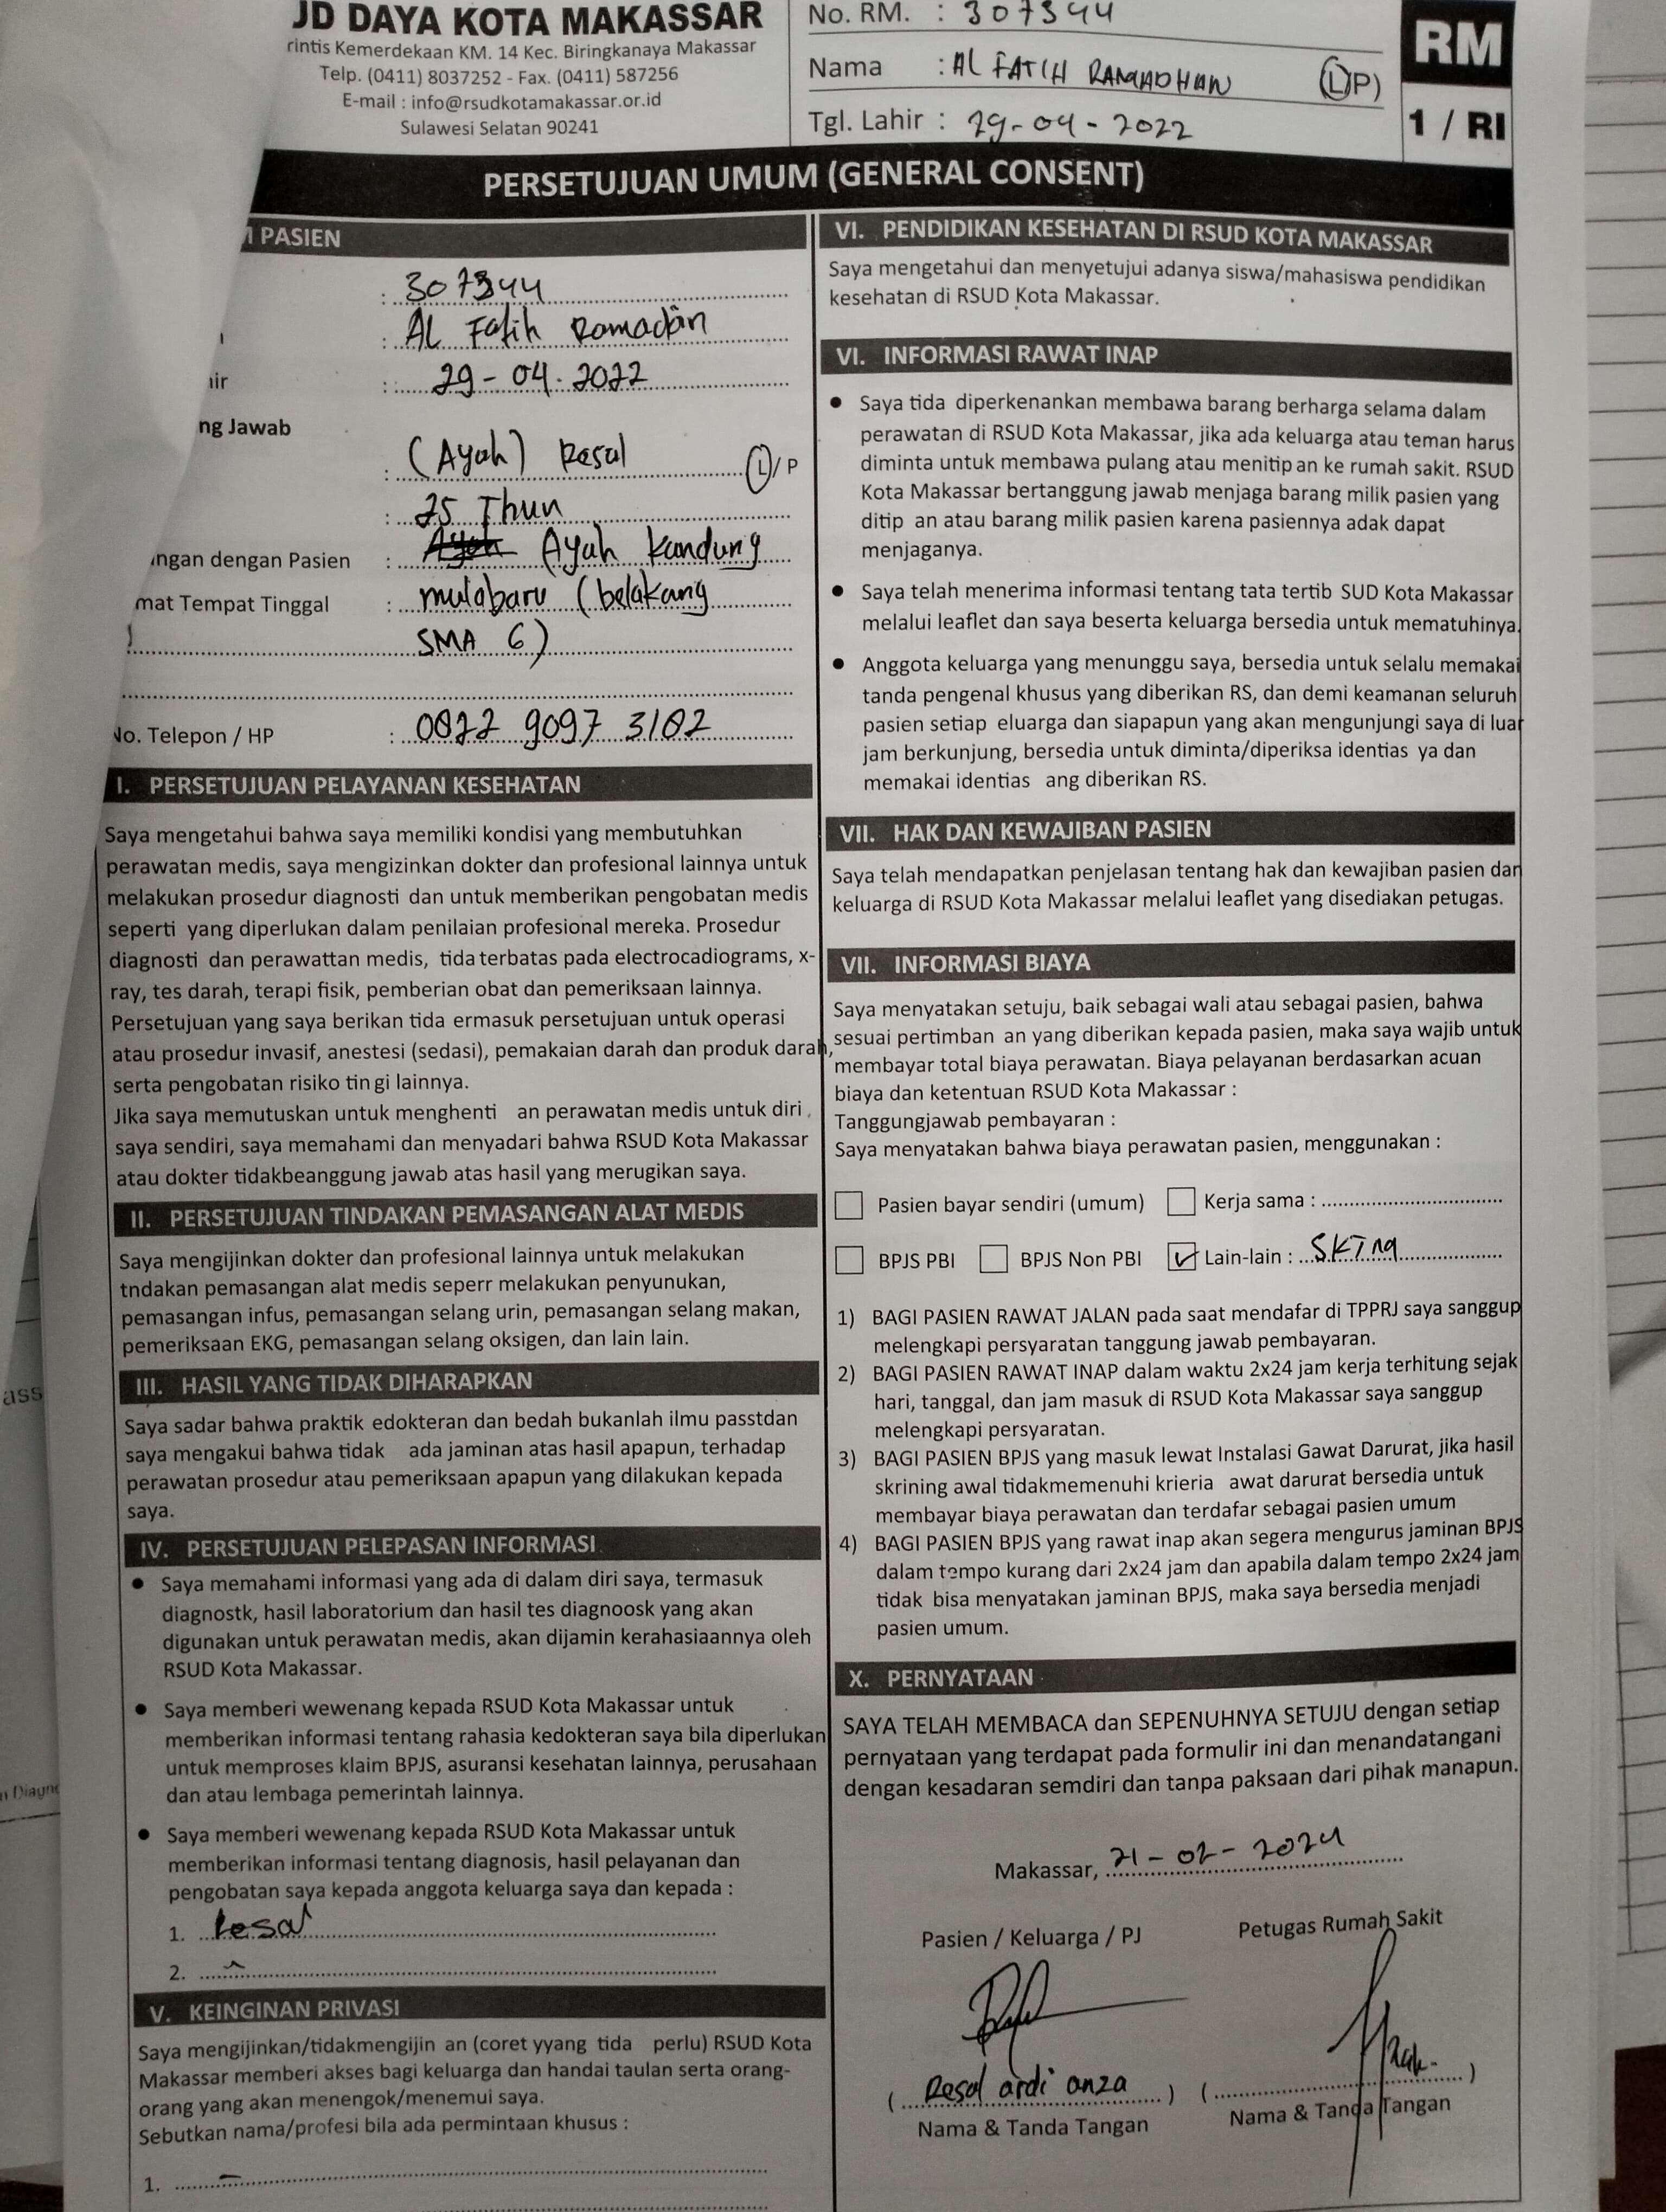 JD DAYA KOTA MAKASSAR
rintis Kemerdekaan KM. 14 Kec. Biringkanaya Makassar
Telp. (0411) 8037252 - Fax. (0411) 587256
E-mail : info@rsudkotamakassar.or.id
Sulawesi Selatan 90241
No. RM. : 307344
Nama : AL FATIH RAMADHAN (L/P)
Tgl. Lahir : 29-04-2022
RM
1 / RI
PERSETUJUAN UMUM (GENERAL CONSENT)
PASIEN
: 307344
: AL Fatih Ramadan
ir : 29-04-2022
ng Jawab
: (Ayah) Resal L/P
: 25 Thun
ngan dengan Pasien : Ayah Kandung
mat Tempat Tinggal : mulabaru (belakang
SMA 6)
No. Telepon / HP : 0822 9097 3182
I. PERSETUJUAN PELAYANAN KESEHATAN
Saya mengetahui bahwa saya memiliki kondisi yang membutuhkan
perawatan medis, saya mengizinkan dokter dan profesional lainnya untuk
melakukan prosedur diagnosti dan untuk memberikan pengobatan medis
seperti yang diperlukan dalam penilaian profesional mereka. Prosedur
diagnosti dan perawattan medis, tida terbatas pada electrocadiograms, x-
ray, tes darah, terapi fisik, pemberian obat dan pemeriksaan lainnya.
Persetujuan yang saya berikan tida ermasuk persetujuan untuk operasi
atau prosedur invasif, anestesi (sedasi), pemakaian darah dan produk darah,
serta pengobatan risiko tin gi lainnya.
Jika saya memutuskan untuk menghenti an perawatan medis untuk diri
saya sendiri, saya memahami dan menyadari bahwa RSUD Kota Makassar
atau dokter tidakbeanggung jawab atas hasil yang merugikan saya.
II. PERSETUJUAN TINDAKAN PEMASANGAN ALAT MEDIS
Saya mengijinkan dokter dan profesional lainnya untuk melakukan
tndakan pemasangan alat medis seperr melakukan penyunukan,
pemasangan infus, pemasangan selang urin, pemasangan selang makan,
pemeriksaan EKG, pemasangan selang oksigen, dan lain lain.
III. HASIL YANG TIDAK DIHARAPKAN
Saya sadar bahwa praktik edokteran dan bedah bukanlah ilmu passtdan
saya mengakui bahwa tidak ada jaminan atas hasil apapun, terhadap
perawatan prosedur atau pemeriksaan apapun yang dilakukan kepada
saya.
IV. PERSETUJUAN PELEPASAN INFORMASI
● Saya memahami informasi yang ada di dalam diri saya, termasuk
diagnostk, hasil laboratorium dan hasil tes diagnoosk yang akan
digunakan untuk perawatan medis, akan dijamin kerahasiaannya oleh
RSUD Kota Makassar.
● Saya memberi wewenang kepada RSUD Kota Makassar untuk
memberikan informasi tentang rahasia kedokteran saya bila diperlukan
untuk memproses klaim BPJS, asuransi kesehatan lainnya, perusahaan
dan atau lembaga pemerintah lainnya.
● Saya memberi wewenang kepada RSUD Kota Makassar untuk
memberikan informasi tentang diagnosis, hasil pelayanan dan
pengobatan saya kepada anggota keluarga saya dan kepada :
1. Resal
2.
V. KEINGINAN PRIVASI
Saya mengijinkan/tidakmengijin an (coret yyang tida perlu) RSUD Kota
Makassar memberi akses bagi keluarga dan handai taulan serta orang-
orang yang akan menengok/menemui saya.
Sebutkan nama/profesi bila ada permintaan khusus :
1. -
VI. PENDIDIKAN KESEHATAN DI RSUD KOTA MAKASSAR
Saya mengetahui dan menyetujui adanya siswa/mahasiswa pendidikan
kesehatan di RSUD Kota Makassar.
VI. INFORMASI RAWAT INAP
● Saya tida diperkenankan membawa barang berharga selama dalam
perawatan di RSUD Kota Makassar, jika ada keluarga atau teman harus
diminta untuk membawa pulang atau menitip an ke rumah sakit. RSUD
Kota Makassar bertanggung jawab menjaga barang milik pasien yang
ditip an atau barang milik pasien karena pasiennya adak dapat
menjaganya.
● Saya telah menerima informasi tentang tata tertib SUD Kota Makassar
melalui leaflet dan saya beserta keluarga bersedia untuk mematuhinya.
● Anggota keluarga yang menunggu saya, bersedia untuk selalu memakai
tanda pengenal khusus yang diberikan RS, dan demi keamanan seluruh
pasien setiap eluarga dan siapapun yang akan mengunjungi saya di luar
jam berkunjung, bersedia untuk diminta/diperiksa identias ya dan
memakai identias ang diberikan RS.
VII. HAK DAN KEWAJIBAN PASIEN
Saya telah mendapatkan penjelasan tentang hak dan kewajiban pasien dan
keluarga di RSUD Kota Makassar melalui leaflet yang disediakan petugas.
VII. INFORMASI BIAYA
Saya menyatakan setuju, baik sebagai wali atau sebagai pasien, bahwa
sesuai pertimban an yang diberikan kepada pasien, maka saya wajib untuk
membayar total biaya perawatan. Biaya pelayanan berdasarkan acuan
biaya dan ketentuan RSUD Kota Makassar :
Tanggungjawab pembayaran :
Saya menyatakan bahwa biaya perawatan pasien, menggunakan :
Pasien bayar sendiri (umum) Kerja sama :
BPJS PBI BPJS Non PBI ✓ Lain-lain :
1) BAGI PASIEN RAWAT JALAN pada saat mendafar di TPPRJ saya sanggup
melengkapi persyaratan tanggung jawab pembayaran.
2) BAGI PASIEN RAWAT INAP dalam waktu 2x24 jam kerja terhitung sejak
hari, tanggal, dan jam masuk di RSUD Kota Makassar saya sanggup
melengkapi persyaratan.
3) BAGI PASIEN BPJS yang masuk lewat Instalasi Gawat Darurat, jika hasil
skrining awal tidakmemenuhi krieria awat darurat bersedia untuk
membayar biaya perawatan dan terdafar sebagai pasien umum
4) BAGI PASIEN BPJS yang rawat inap akan segera mengurus jaminan BPJS
dalam tempo kurang dari 2x24 jam dan apabila dalam tempo 2x24 jam
tidak bisa menyatakan jaminan BPJS, maka saya bersedia menjadi
pasien umum.
X. PERNYATAAN
SAYA TELAH MEMBACA dan SEPENUHNYA SETUJU dengan setiap
pernyataan yang terdapat pada formulir ini dan menandatangani
dengan kesadaran semdiri dan tanpa paksaan dari pihak manapun.
Makassar, 21-02-2024
Pasien / Keluarga / PJ Petugas Rumah Sakit
( Resal ardi anza ) ( )
Nama & Tanda Tangan Nama & Tanda Tangan
ass
n Diagn